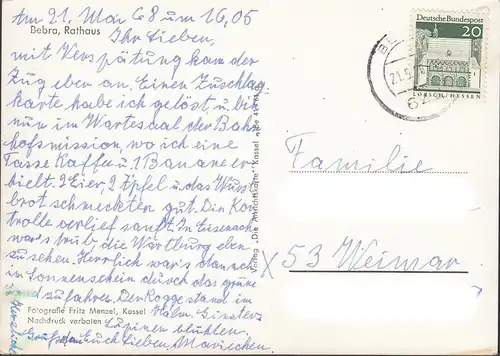 Am 21. Mai 68 um 16,05
Bebra, Rathaus
Ihr Lieben,
mit Verspätung kam der
Zug eben an. Einen Zuschlag-
karte habe ich gelöst u. bin
nun im Wartesaal der Bahn-
hofsmission, wo ich eine
Tasse Kaffee u. 1 Banane er-
hielt. 2 Eier, 2 Äpfel u. das Wurst-
brot schmeckten gut. Die Kon-
trolle verlief sanft. In Eisenach
war's trüb, die Wartburg eben
zu sehen. Herrlich war's dannach
in Sonnenschein durch das grüne
zu fahren. Der Rogge stand im
Fotografie Fritz Menzel, Kassel
Halm. Ginster u.
Nachdruck verboten
Lupinen blühten.
Herzliche
Grüße Euch Lieben, Mariechen.
Verlag „Die Ansichtskarte" Kassel
Deutsche Bundespost
20
LORSCH/HESSEN
21.5.
Familie
x 53 Weimar